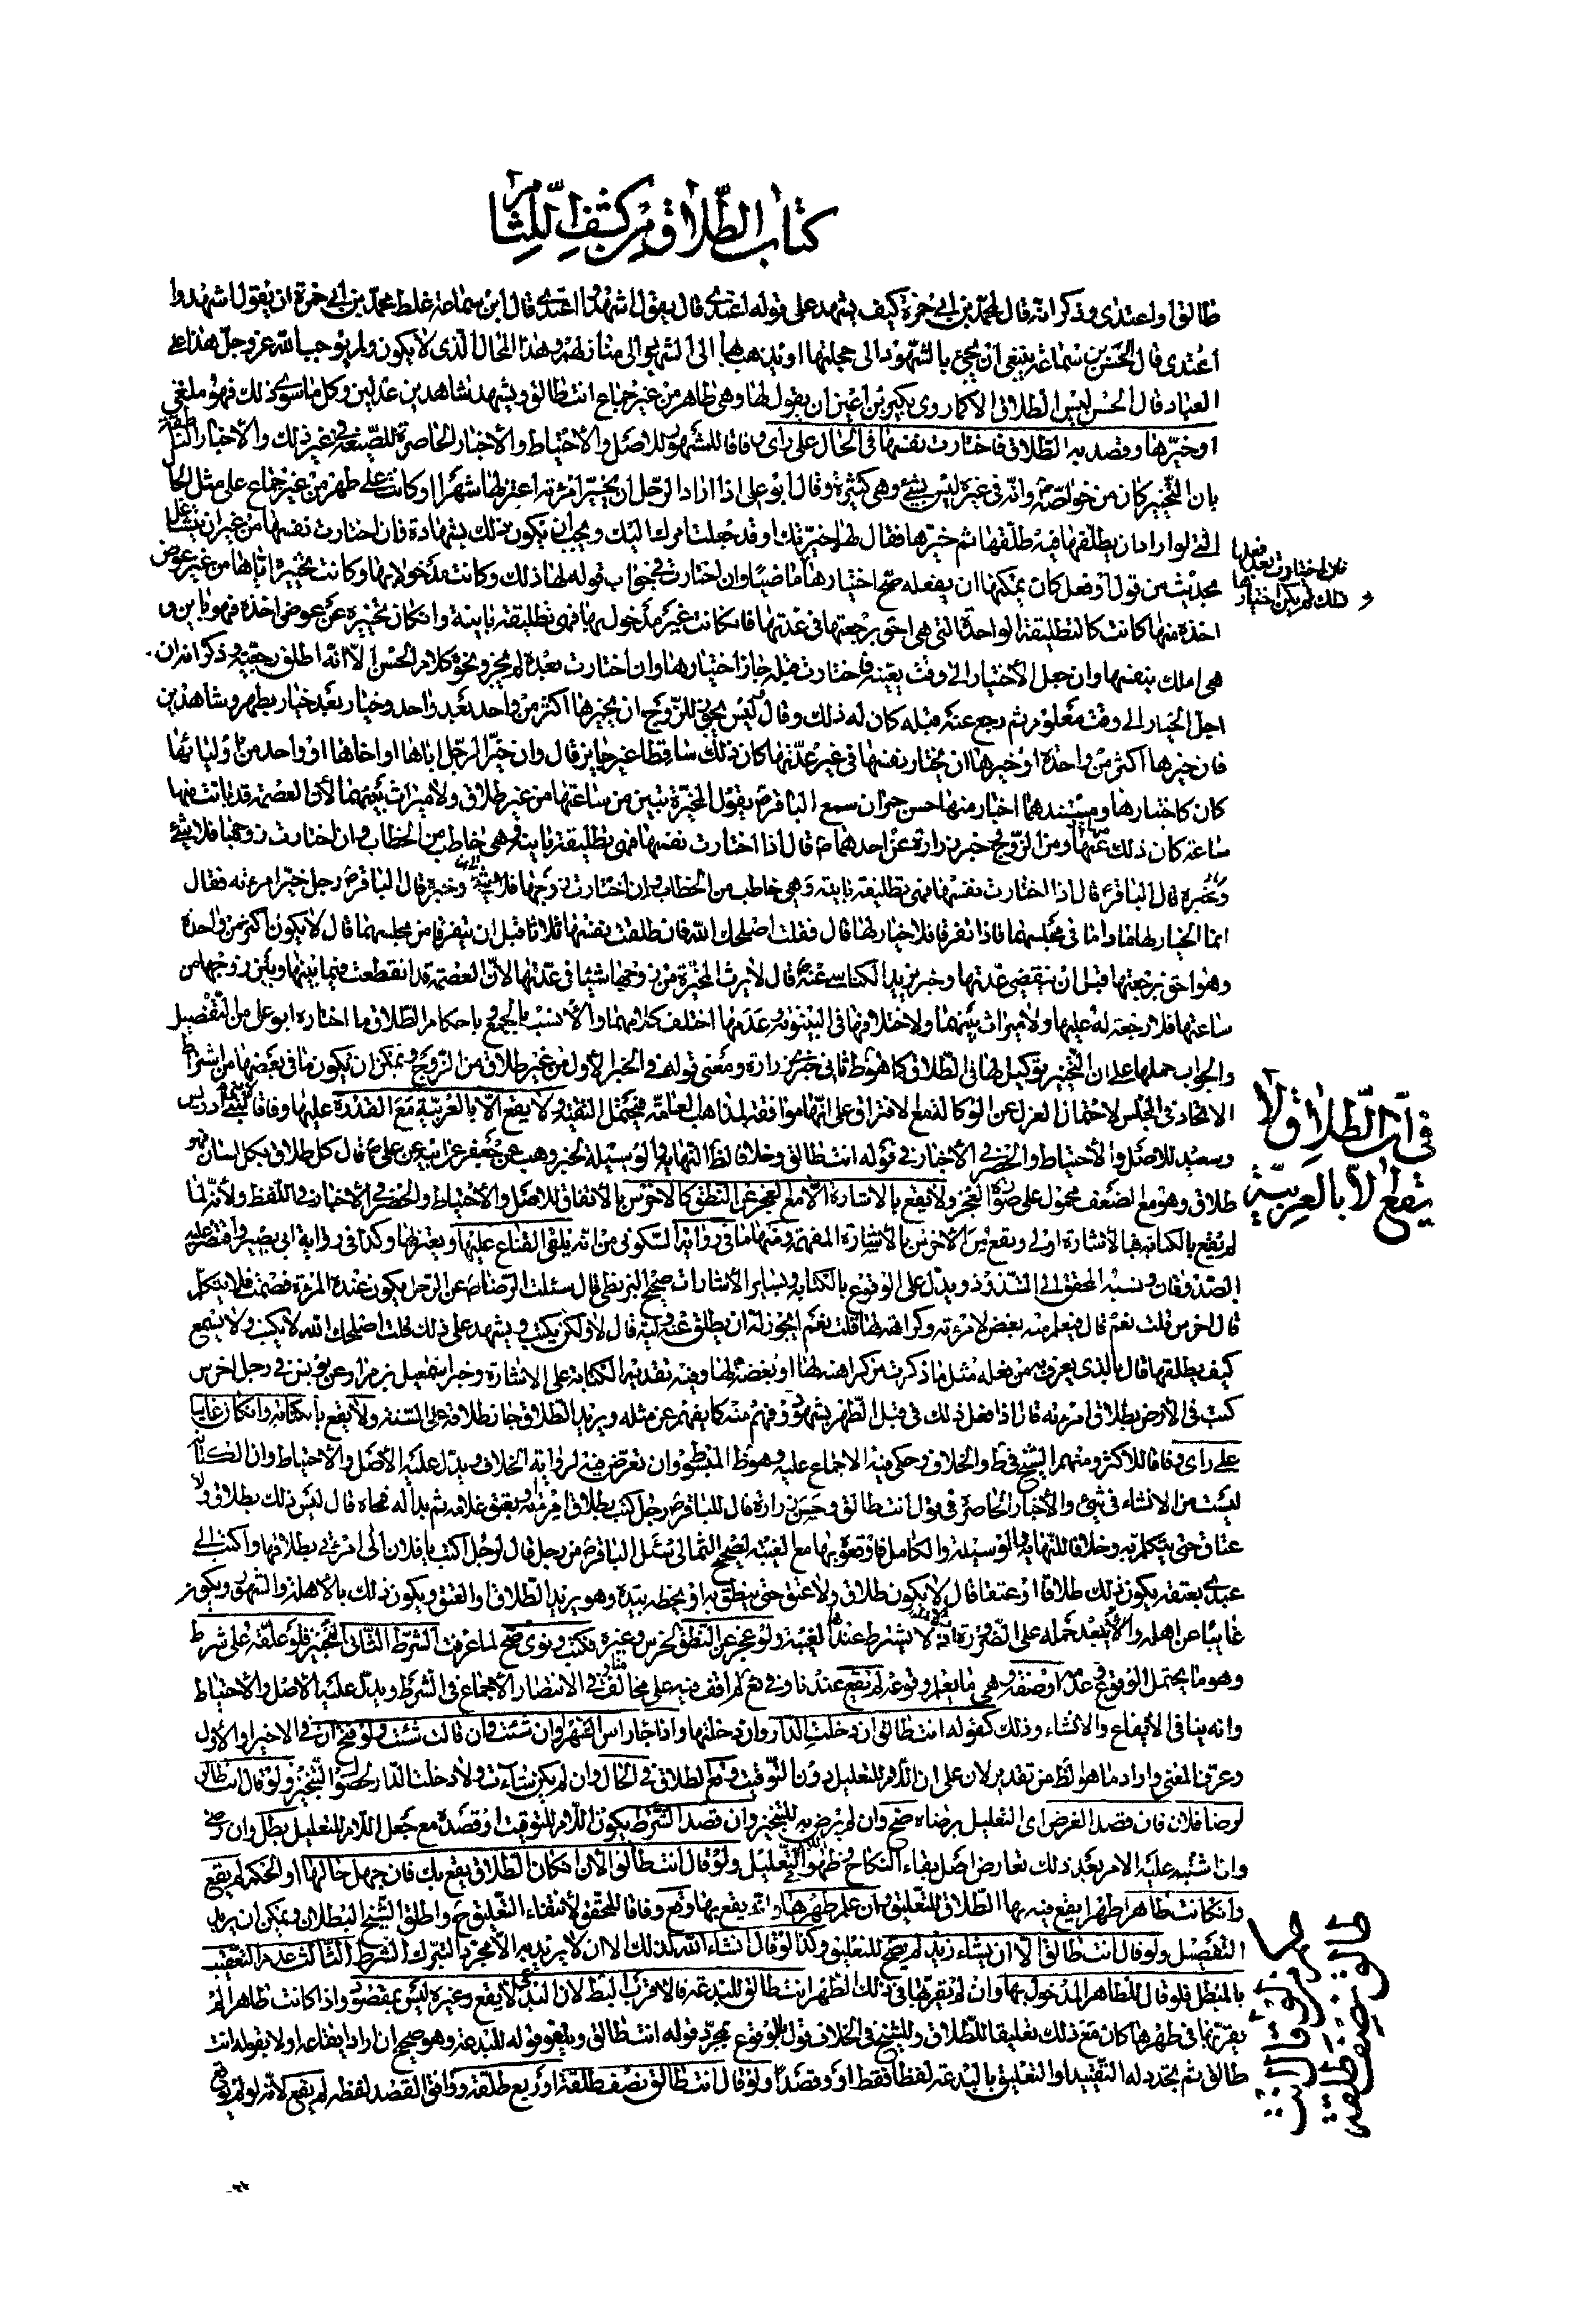 كتاب الطلاق من كشف اللثام
طالق او اعتدى وذكر انه قال لمحمد بن ابى حمزة كيف يشهد على قوله اعتدى قال يقول اشهدوا اعتدى قال ابن سماعة غلط محمد بن ابى حمزة ان يقول اشهدوا
اعتدى قال الحسن بن سماعة ينبغى ان يجئ بالشهود الى حجلتها او يذهب بها الى الشهود الى منازلهم وهذا المحال الذى لا يكون ولم يوجب الله عز وجل هذا على
العباد قال الحسن ليس الطلاق الا كما روى بكير بن اعين ان يقول لها وهى طاهر من غير جماع انت طالق ويشهد شاهدين عدلين وكل ما سوى ذلك فهو ملغى
او خيرها وقصد به الطلاق فاختارت نفسها فى الحال على راى وفاقا للمشهور للاصل والاحتياط والاخبار الحاصرة للصيغة فى غير ذلك والاخبار الناطقة
بان التخيير كان من خواصه ص وانه فى غيره ليس بشئ وهى كثيرة وقال ابو على اذا اراد الرجل ان يخير امرئته اعتزلها شهرا وكانت على طهر من غير جماع على مثل الحال
التى لو اراد ان يطلقها فيه طلقها ثم خيرها فقال لها خيرتك او قد جعلت امرك اليك ويجب ان يكون ذلك بشهادة فان اختارت نفسها من غير ان يتشاغل
بحديث من قول او فعل كان يمكنها ان يفعله صح اختيارها
فان اختارت بعد فعلها
ذلك لم يكن اختيارها
ماضيا وان اختارت فى جواب قوله لها ذلك وكانت مدخولا بها وكانت تخييره اياها من غير عوض
اخذه منها كانت كالتطليقة الواحدة التى هى احق برجعتها فى عدتها فان كانت غير مدخول بها فهى تطليقة باينة وان كان تخييره عن عوض اخذه فهو باين و
هى املك بنفسها وان جعل الاختيار الى وقت بعينه فاختارت قبله جاز اختيارها وان اختارت بعده لم يجز ونحوه كلام الحسن الا انه اطلق رجعيته وذكر انه ان
اجل الخيار الى وقت معلوم ثم رجع عنه قبله كان له ذلك وقال ليس يجوز للزوج ان يخيرها اكثر من واحد بعد واحد وخيار بعد خيار بطهر وشاهدين
فان خيرها اكثر من واحدة او خيرها ان يختار نفسها فى غير عدتها كان ذلك ساقطا غير جايز قال وان خير الرجل اباها او اخاها او واحد من اوليائها
كان كاختيارها ومستندهما اخبار منها حسن حمران سمع الباقر ع يقول المخيرة تبين من ساعتها من غير طلاق ولا ميراث بينهما لان العصمة قد بانت منها
ساعة كان ذلك منها ومن الزوج خبر زرارة عن احدهما ع قال اذا اختارت نفسها فهى تطليقة باينة وهى خاطب من الخطاب وان اختارت زوجها فلا شئ
وخبره قال الباقر ع قال اذا اختارت نفسها فهى تطليقة باينة وهى خاطب من الخطاب وان اختارت زوجها فلا شئ وخبره قال الباقر ع رجل خير امرئته فقال
انما الخيار لها ما داما فى مجلسهما فاذا تفرقا فلا خيار لها قال فقلت اصلحك الله فان طلقت نفسها ثلاثا قبل ان يتفرقا من مجلسهما قال لا يكون اكثر من واحدة
وهو احق برجعتها قبل ان ينقضى عدتها وخبر يزيد الكناسى عنه ع قال لا يرث المخيرة من زوجها شيئا فى عدتها لان العصمة قد انقطعت فيما بينها وبين زوجها من
ساعتها فلا رجعة له عليها ولا ميراث بينهما ولاختلافها فى البينونة وعدمها اختلف كلامهما والانسب بالجمع باحكام الطلاق ما اختاره ابو على من التفصيل
والجواب حملها على ان التخيير توكيل لها فى الطلاق كما هو ظ فى خبر زرارة ومعنى قوله فى الخبر الاول من غير طلاق من الزوج ويمكن ان يكون ما فى بعضها من اشتراط
الاتحاد فى المجلس لاحتمال العزل عن الوكالة مع الافتراق على انها موافقة لمذاهب العامة فيحتمل التقية ولا يقع الا بالعربية مع القدرة عليها وفاقا لبنى ادريس
فى ان الطلاق لا
يقع الا بالعربية
وسعيد للاصل والاحتياط والحصر فى الاخبار فى قوله انت طالق وخلافا لظ النهاية والوسيلة لخبر وهب عن جعفر عن ابيه عن على ع قال كل طلاق بكل لسان فهو
طلاق وهو مع الضعف محمول على صورة العجز ولا يقع بالاشارة الا مع العجز عن النطق كالاخرس بالاتفاق للاصل والاحتياط والحصر فى الاخبار فى اللفظ ولانه لما
لم يقع بالكناية فبالاشارة اولى ويقع من الاخرس بالاشارة المفهمة ومنها ما فى رواية السكونى من انه يلقى القناع عليها ويعتزلها وكذا فى رواية ابى بصير واقتصر عليه
الصدوقان ونسبه المحقق الى الشذوذ ويدل على الوقوع بالكتابة وبساير الاشارات صحيح البزنطى قال سئلت الرضا ع عن الرجل يكون عنده المرئة فصمت فلا يتكلم
قال اخرس قلت نعم قال فيعلم منه بغض لامرئته وكراهته لها قلت نعم ايجوز له ان يطلق عنه وليه قال لا ولكن يكتب ويشهد على ذلك قلت اصلحك الله لا يكتب ولا يسمع
كيف يطلقها قال بالذى يعرف به من فعله مثل ما ذكرت من كراهته لها او بغضه لها وفيه تقديم الكتابة على الاشارة وخبر اسمعيل بن مرار عن يونس فى رجل اخرس
كتب فى الارض بطلاق امرئته قال اذا فعل ذلك فى قبل الطهر بشهود وفهم منه كما يفهم عن مثله ويريد الطلاق جاز طلاقه على السنة ولا يقع بالكتابة وان كان غايبا
على راى وفاقا للاكثر ومنهم الشيخ فى ط والخلاف وحكى فيه الاجماع عليه وهو ظ المبسوط وان تعرض فيه لرواية الخلاف ويدل عليه الاصل والاحتياط وان الكتابة
ليست من الانشاء فى شئ والاخبار الحاصرة فى قول انت طالق وحسن زرارة قال للباقر ع رجل كتب بطلاق امرئته او بعتق غلامه ثم بدا له فمحاه قال ليس ذلك بطلاق ولا
عتاق حتى يتكلم به وخلافا للنهاية والوسيلة والكامل فاوقعوه بها مع الغيبة لصحيح الثمالى سئل الباقر ع من رجل قال لرجل اكتب يا فلان الى امرئتى بطلاقها واكتب الى
عبدى بعتقه يكون ذلك طلاقا او عتقا قال لا يكون طلاق ولا عتق حتى ينطق به او يخطه بيده وهو يريد الطلاق او العتق ويكون ذلك بالاهلة والشهور ويكون
غايبا عن اهله ولا يبعد حمله على الضرورة لانه لا يشترط عندها الغيبة ولو عجز عن النطق لخرس وغيره فكتب ونوى صح لما عرفت الشرط الثانى التنجيز فلو علقه على شرط
وهو ما يحتمل الوقوع وعدمه او صفة وهى ما يعلم وقوعه لم يقع عندنا وفى يع لم اقف فيه على مخالف منا وفى الانتصار الاجماع فى الشرط ويدل عليه الاصل والاحتياط
وانه ينافى الايقاع والانشاء وذلك كقوله انت طالق ان دخلت الدار وان دخلتها واذا جاء راس الشهر وان شئت وان قالت شئت ولو فتح ان فى الاخير او الاول
وعرف المعنى واراد ما هو ظ من تقدير لان على ان اللام للتعليل دون التوقيت وقع الطلاق فى الحال وان لم يكن شاءت ولا دخلت الدار لحصول التنجيز ولو قال انت طالق
لرضا فلان فان قصد الغرض اى التعليل برضاه صح وان لم يرض به للتنجيز وان قصد الشرط يكون اللام للتوقيت او قصده مع جعل اللام للتعليل بطل وان رضى
وان اشتبه عليه الامر بعد ذلك تعارض اصل بقاء النكاح وظهور اللام فى التعليل ولو قال انت طالق الان ان كان الطلاق يقع بك فان جهل حالها او الحكم لم يقع
وان كانت طاهرا طهرا يقع فيه بها الطلاق للتعليق وان علم طهرها وانه يقع بها وقع وفاقا للمحقق لانتفاء التعليق ح واطلق الشيخ البطلان ويمكن ان يريد
التفصيل ولو قال انت طالق الا ان يشاء زيد لم يصح للتعليق وكذا لو قال انشاء الله لذلك الا ان لا يريد به الا مجرد التبرك الشرط الثالث عدم التعقيب
بالمبطل فلو قال للطاهر المدخول بها وان لم يقربها فى ذلك الطهر انت طالق للبدعة فالاقرب البطلان لان البدعى لا يقع وغيره ليس بمقصود واذا كانت طاهرا لم
يقربها فى طهرها كان مع ذلك تعليقا للطلاق وللشيخ فى الخلاف قول بالوقوع بمجرد قوله انت طالق ويلغو قوله للبدعة وهو صحيح ان اراد ايقاعه اولا بقوله انت
طالق ثم يجدد له التقييد او التعليق بالبدعة لفظا فقط او وقصدا ولو قال انت طالق نصف طلقة او ربع طلقة ووافق القصد لفظه لم يقع لانه لو لم يوقع
حكم ما لو قال انت
طالق نصف طلقة